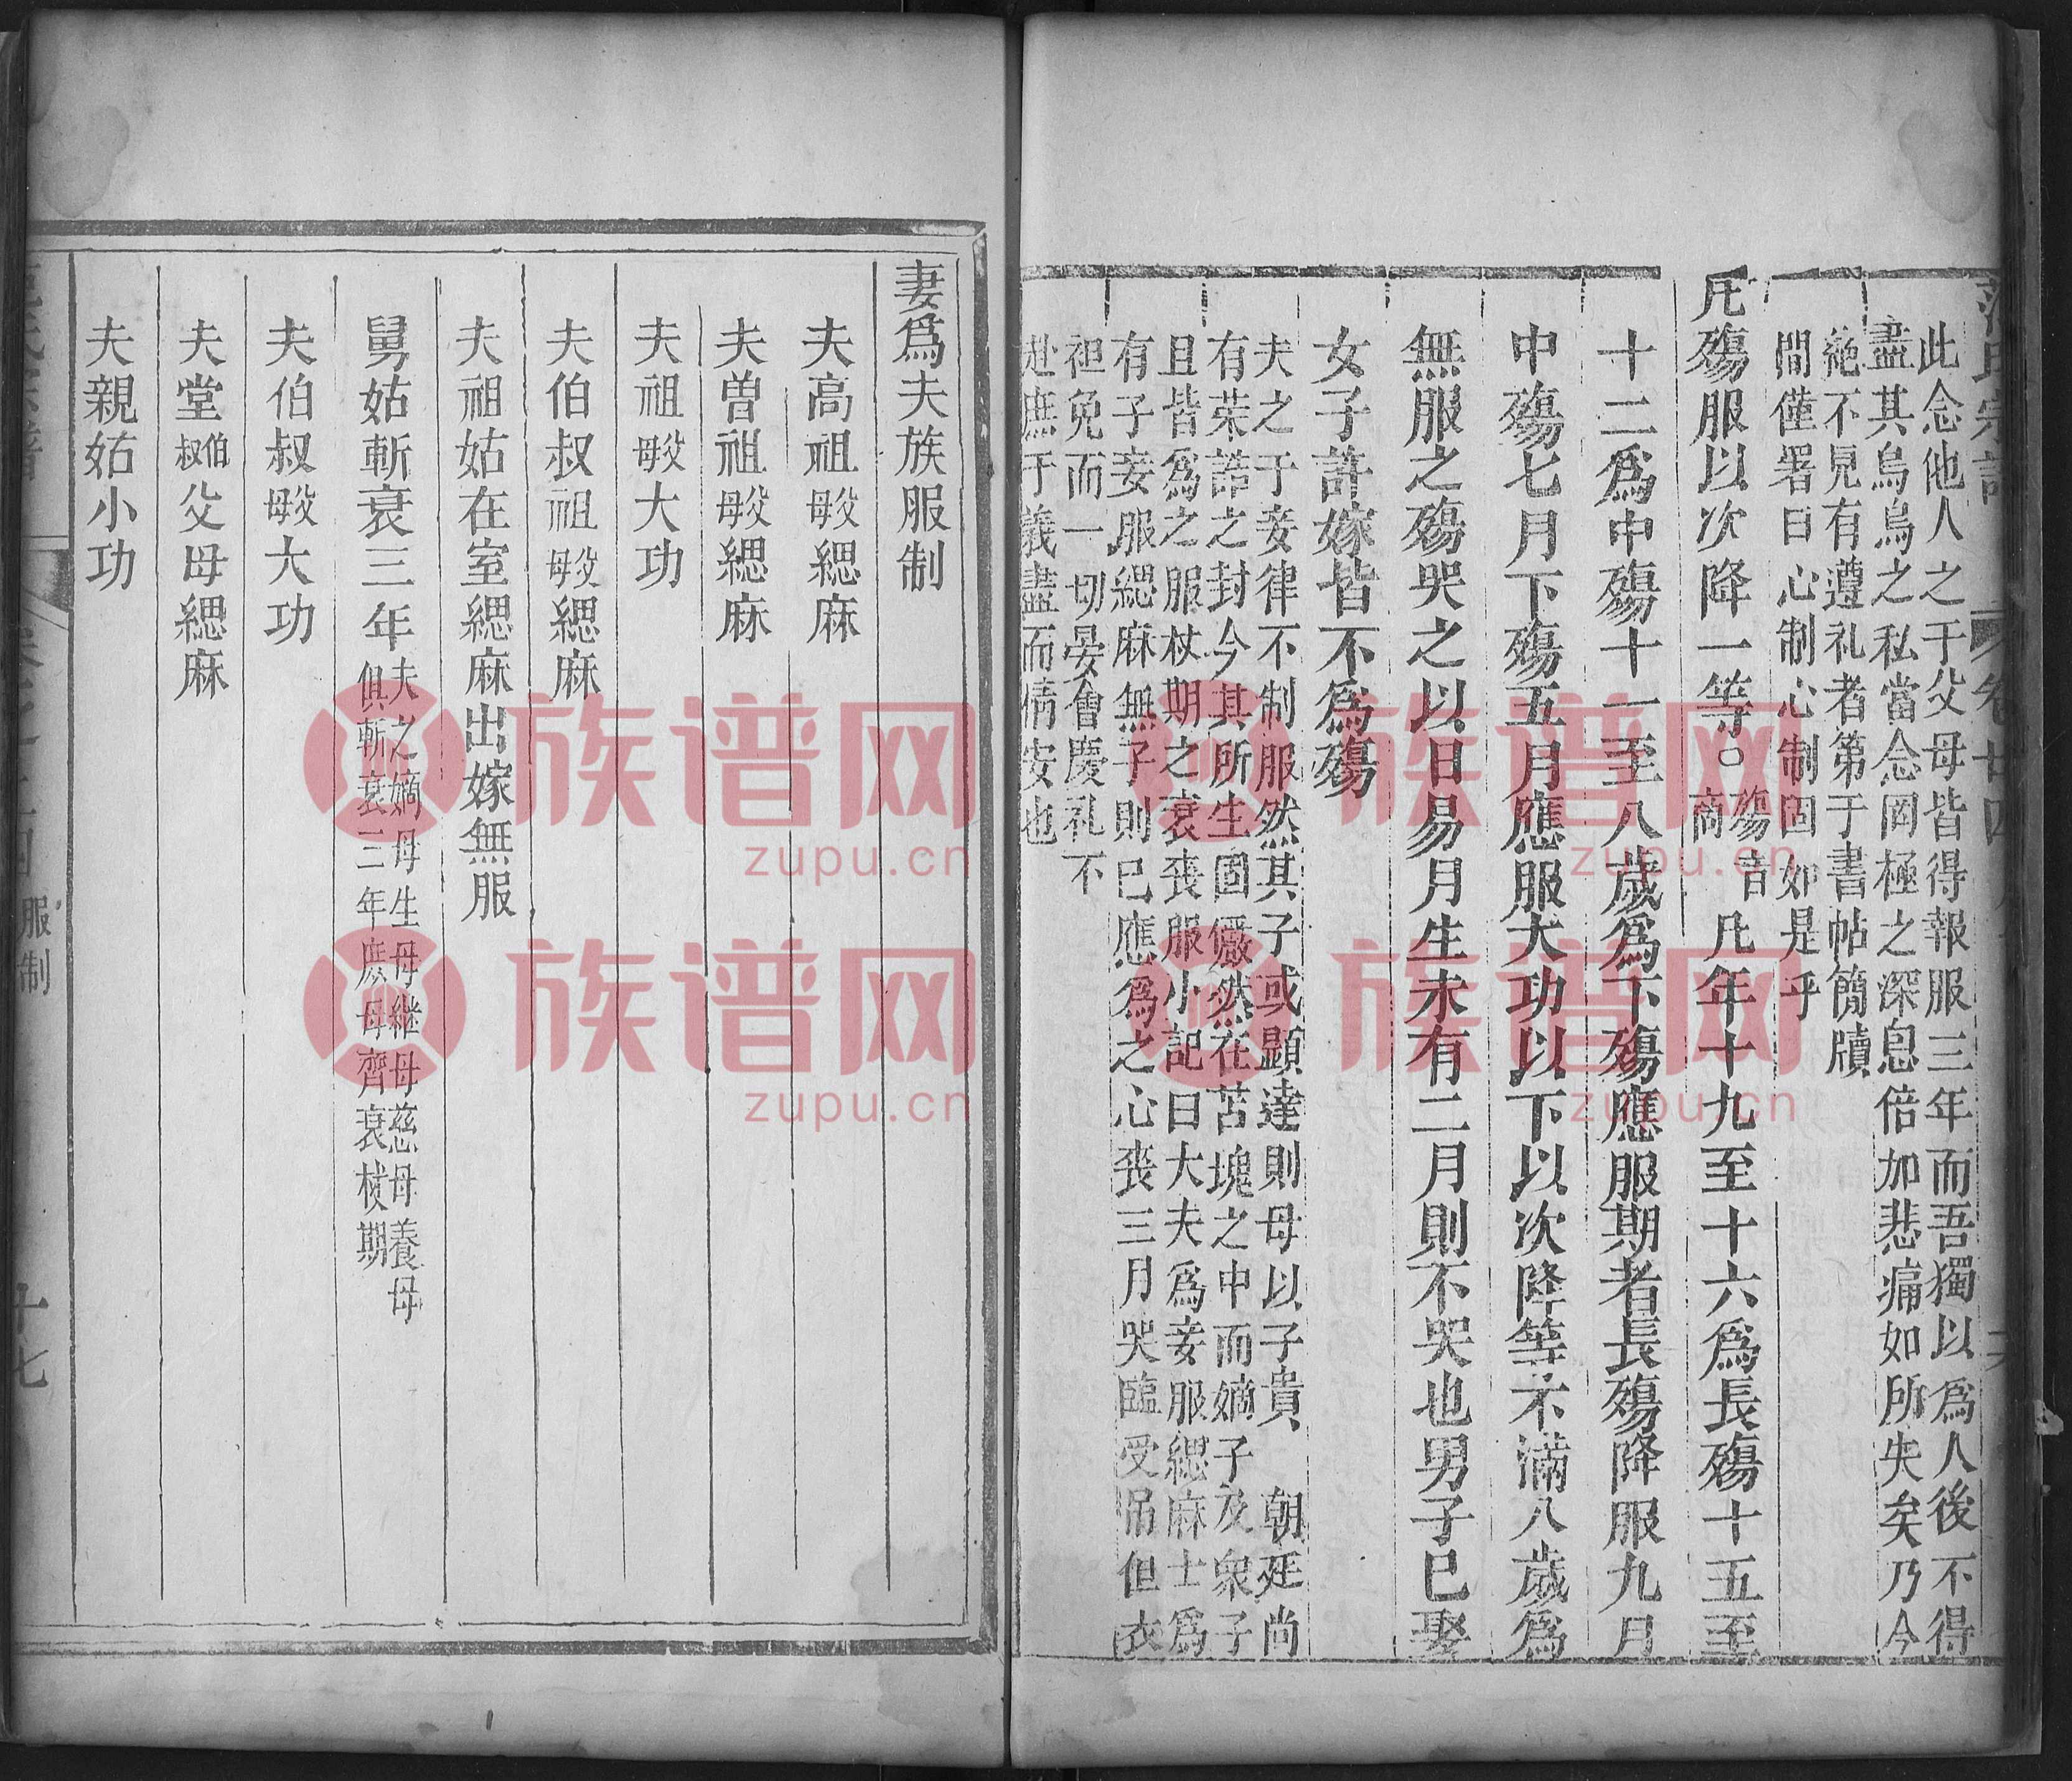 氏宗譜 卷廿四
此念他人之于父母皆得報服三年而吾獨以爲人後不得
盡其烏鳥之私當念罔極之深恩倍加悲痛如所失矣乃今
絶不見有遵礼者第于書帖簡牘
間僅署曰心制心制固如是乎
凡殤服以次降一等○殤音商 凡年十九至十六爲長殤十五至
十二爲中殤十一至八歲爲下殤應服期者長殤降服九月
中殤七月下殤五月應服大功以下以次降等不滿八歲爲
無服之殤哭之以日易月生未有二月則不哭也男子已娶
女子許嫁皆不爲殤
夫之于妾律不制服然其子或顯達則母以子貴 朝廷尚
有荣誥之封今其所生固儼然在苫塊之中而嫡子及衆子
且皆爲之服杖期之衰喪服小記曰大夫爲妾服緦麻士爲
有子妾服緦麻無子則已應爲之心喪三月哭臨受吊但衣
袒免而一切宴會慶礼不
赴庶于義盡而情安也
妻爲夫族服制
夫高祖父母緦麻
夫曽祖父母緦麻
夫祖父母大功
夫伯叔祖父母緦麻
夫祖姑在室緦麻出嫁無服
舅姑斬衰三年夫之嫡母生母継母慈母養母
俱斬衰三年庶母齊衰杖期
夫伯叔父母大功
夫堂伯叔父母緦麻
夫親姑小功
服制 十七
族谱网
zupu.cn
族谱网
zupu.cn
族谱网
zupu.cn
族谱网
zupu.cn